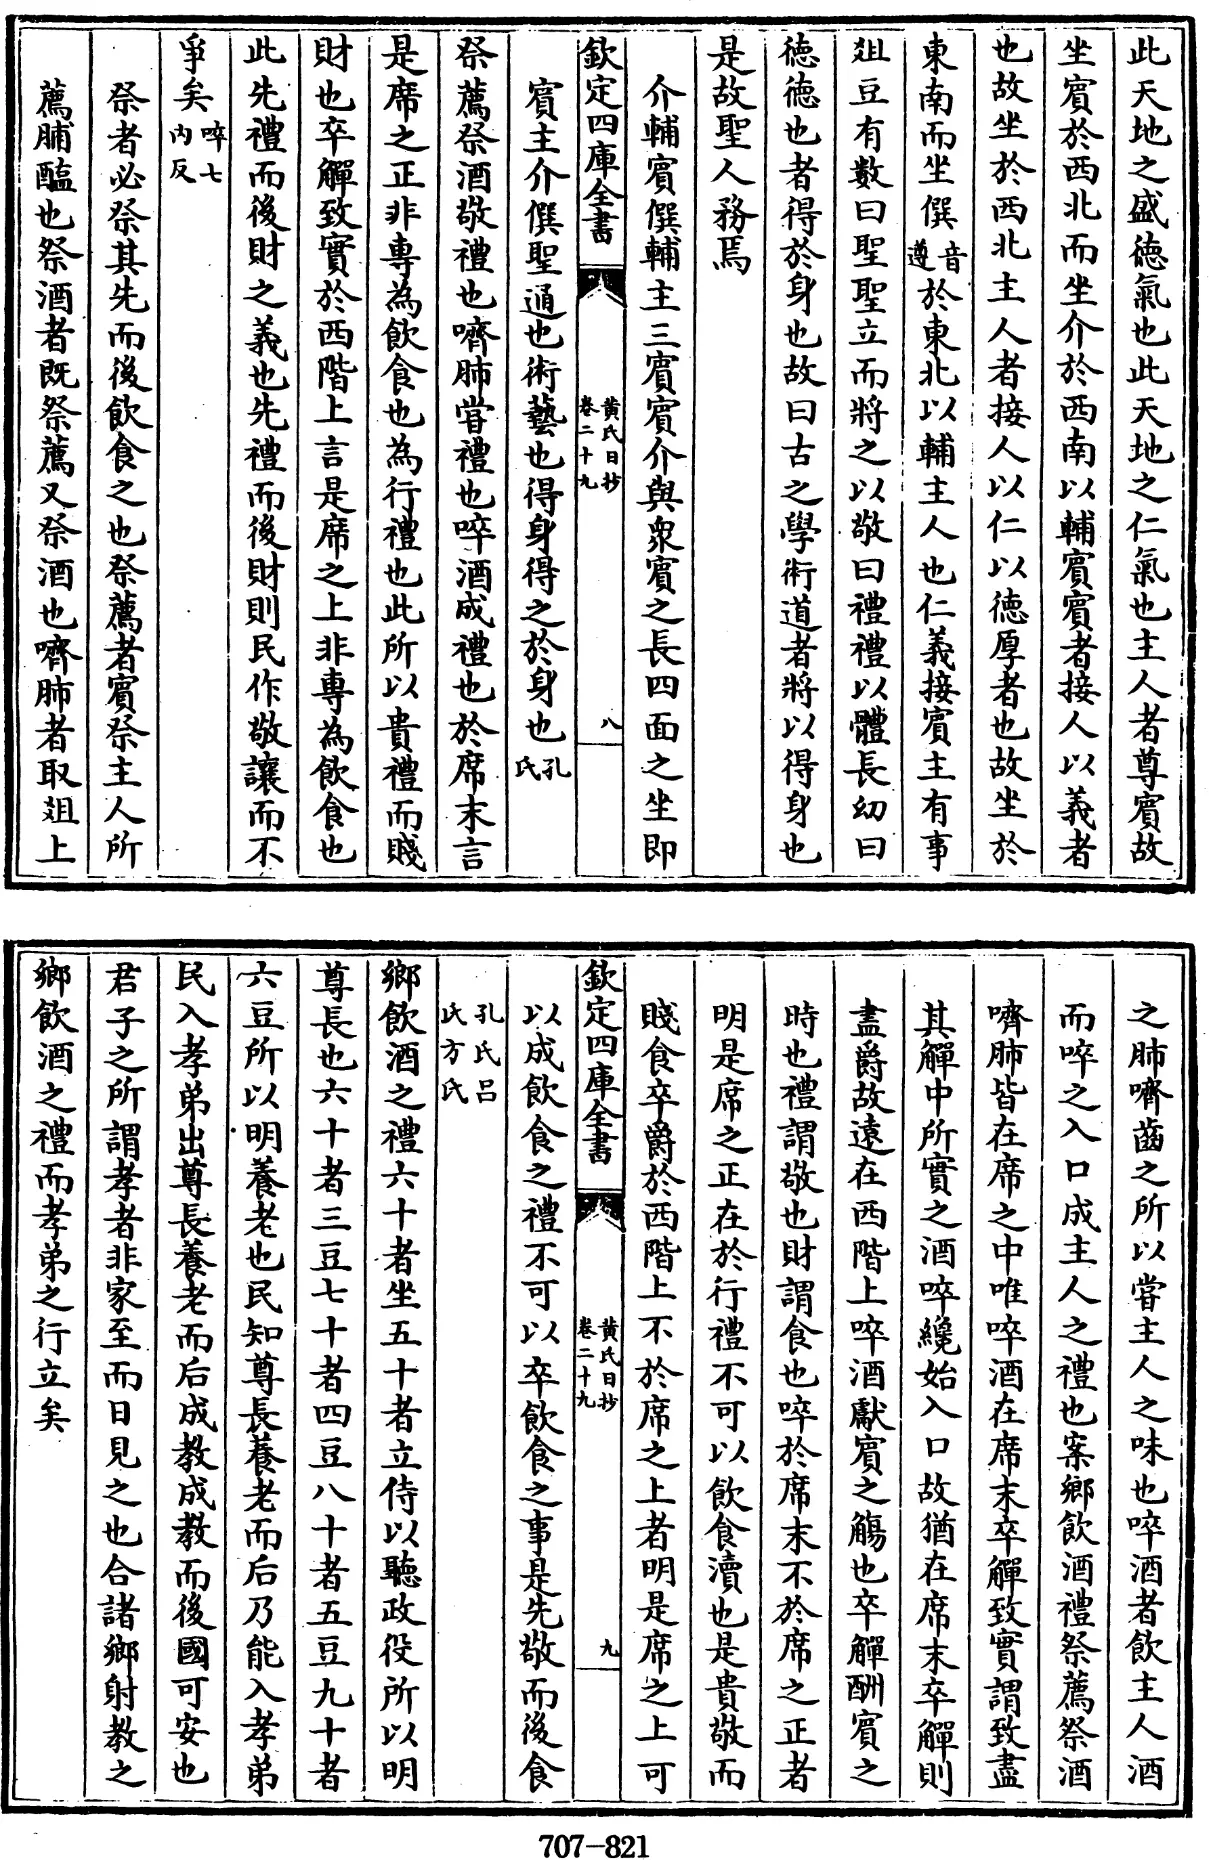 此天地之盛徳氣也此天地之仁氣也主人者尊賓故
坐賓於西北而坐介於西南以輔賓賓者接人以義者
也故坐於西北主人者接人以仁以徳厚者也故坐於
東南而坐僎音遵於東北以輔主人也仁義接賓主有事
俎豆有數曰聖聖立而將之以敬曰禮禮以體長幼曰
徳徳也者得於身也故曰古之學術道者將以得身也
是故聖人務焉
介輔賓僎輔主三賓賓介與衆賓之長四面之坐即
欽定四庫全書
黄氏日抄
卷二十九
八
賓主介僎聖通也術藝也得身得之於身也孔氏
祭薦祭酒敬禮也嚌肺嘗禮也啐酒成禮也於席末言
是席之正非專為飲食也為行禮也此所以貴禮而賤
財也卒觶致實於西階上言是席之上非專為飲食也
此先禮而後財之義也先禮而後財則民作敬讓而不
爭矣啐七内反
祭者必祭其先而後飲食之也祭薦者賓祭主人所
薦脯醢也祭酒者既祭薦又祭酒也嚌肺者取俎上
之肺嚌齒之所以嘗主人之味也啐酒者飲主人酒
而啐之入口成主人之禮也案鄉飲酒禮祭薦祭酒
嚌肺皆在席之中唯啐酒在席末卒觶致實謂致盡
其觶中所實之酒啐纔始入口故猶在席末卒觶則
盡爵故遠在西階上啐酒獻賓之觴也卒觶酬賓之
時也禮謂敬也財謂食也啐於席末不於席之正者
明是席之正在於行禮不可以飲食瀆也是貴敬而
賤食卒爵於西階上不於席之上者明是席之上可
欽定四庫全書
黄氏日抄
卷二十九
九
以成飲食之禮不可以卒飲食之事是先敬而後食
孔氏吕氏方氏
鄉飲酒之禮六十者坐五十者立侍以聽政役所以明
尊長也六十者三豆七十者四豆八十者五豆九十者
六豆所以明養老也民知尊長養老而后乃能入孝弟
民入孝弟出尊長養老而后成教成教而後國可安也
君子之所謂孝者非家至而日見之也合諸鄉射教之
鄉飲酒之禮而孝弟之行立矣
707-821